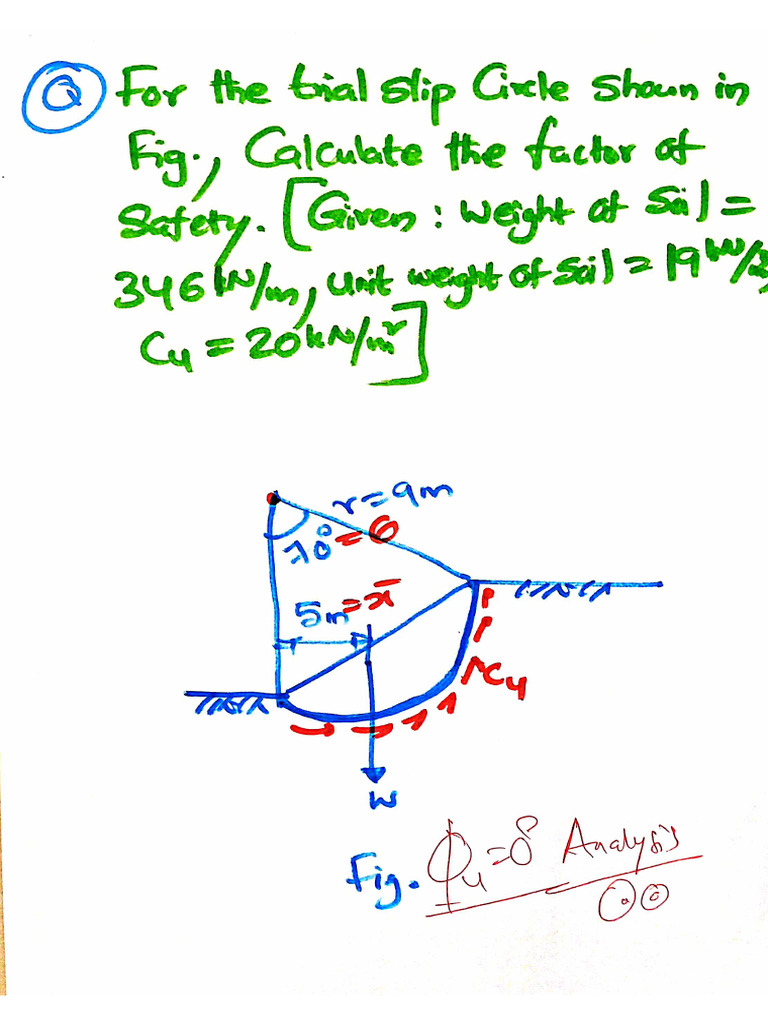 Q For the trial slip Circle shown in
Fig., Calculate the factor of
Safety. [Given : Weight of Soil =
346 kN/m, Unit weight of Soil = 19 kN/m3,
Cu = 20 kN/m²]
r = 9m
70° = θ
5m = x̄
Cu
W
Fig. ϕu = 0 Analysis